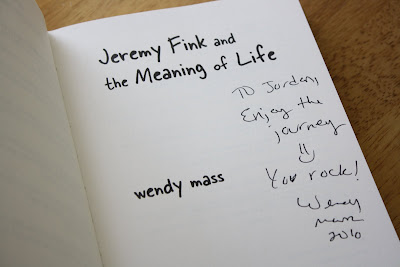 Jeremy Fink and
the Meaning of Life
TO Jorden,
Enjoy the
journey
You rock!
wendy mass
Wendy
Mass
2010